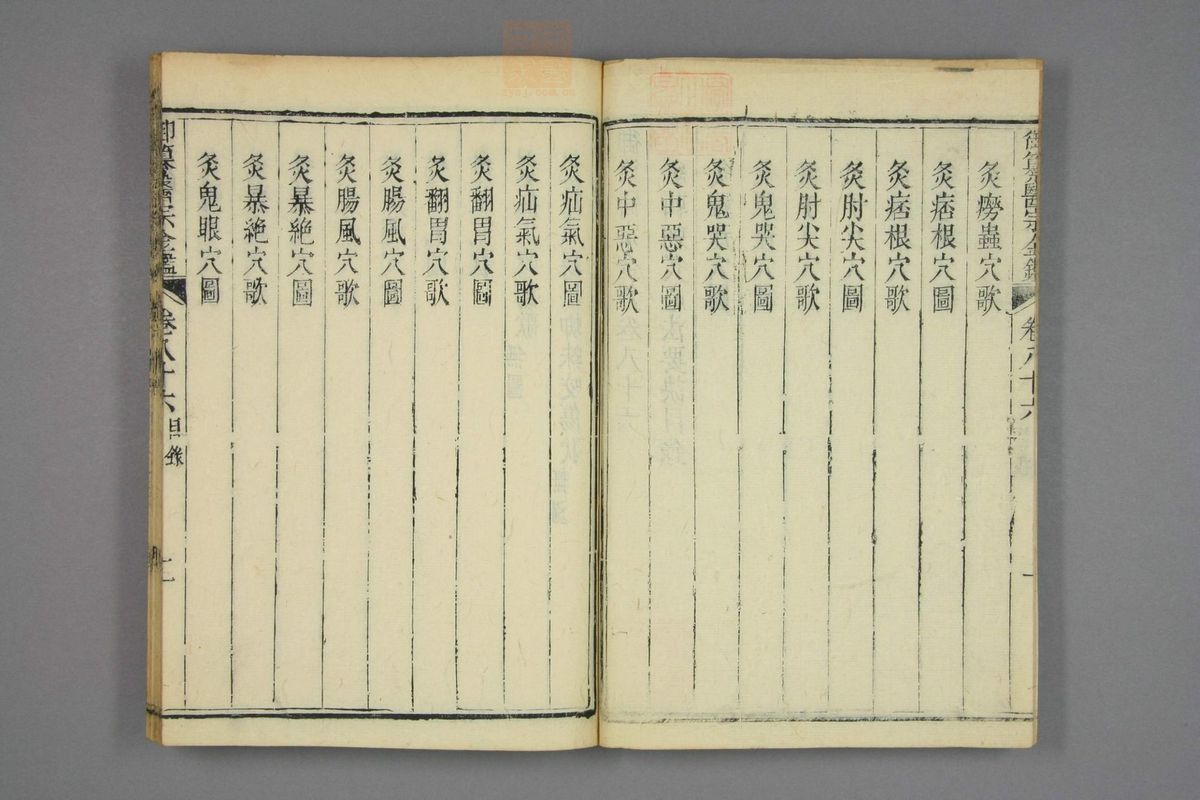 御纂醫宗金鑑 卷八十六 一
灸癆蟲穴歌
灸痞根穴圖
灸痞根穴歌
灸肘尖穴圖
灸肘尖穴歌
灸鬼哭穴圖
灸鬼哭穴歌
灸中惡穴圖
灸中惡穴歌
灸疝氣穴圖
灸疝氣穴歌
灸翻胃穴圖
灸翻胃穴歌
灸腸風穴圖
灸腸風穴歌
灸暴絕穴圖
灸暴絕穴歌
灸鬼眼穴圖
御纂醫宗金鑑 卷八十六 目錄